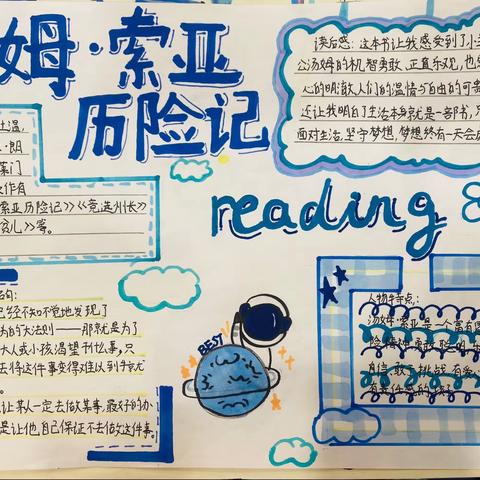 姆·索亚
历险记
读后感：这本书让我感受到了小
公汤姆的机智勇敢、正直乐观，也
心的明澈、人们的温情与自由的可贵
还让我明白了生活本身就是一部书，只
面对生活，坚守梦想，梦想终有一天会
吐温，
·朗
莱门
作有
索亚历险记》》《《竞选州长》
贫儿》》等。
reading
BEST
句：
已经不知不觉地发现了
为的大法则——那就是为了
大人或小孩渴望干什么事，只
去将这件事变得难以到手就
让某人一定去做某事，最好的办
是让他自己保证不去做这件事。
人物特点：
汤姆·索亚是一个富有冒
险精神、勇敢、聪明
自信、敢于挑战、有爱
有责任感的孩